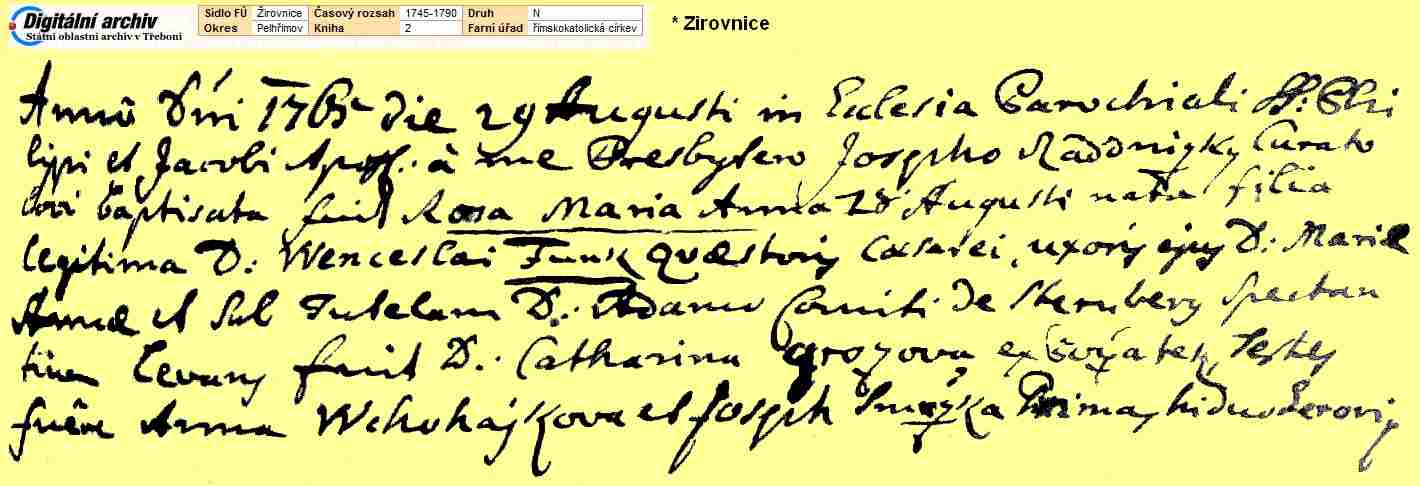 Digitální archiv
Státní oblastní archiv v Třeboni
Sídlo FÚ Žirovnice Časový rozsah 1745-1790 Druh N
Okres Pelhřimov Kniha 2 Farní úřad římskokatolická církev
* Zirovnice
Anno Dni 1765 die 29 Augusti in Ecclesia Parochiali SS: Phi
lippi et Jacobi App. à me Presbytero Josepho Curato
loci baptisata fuit Rosa Maria Anna 28 Augusti nata filia
legitima D: Wenceslai Funk Quæstoris Cæsarei, uxoris ejus D: Mariæ
Annæ et sub Tutelam D: Adamo Comiti de Sternberg spectan
tium Levans fuit D: Catharina Testes
fuêre Anna et Joseph